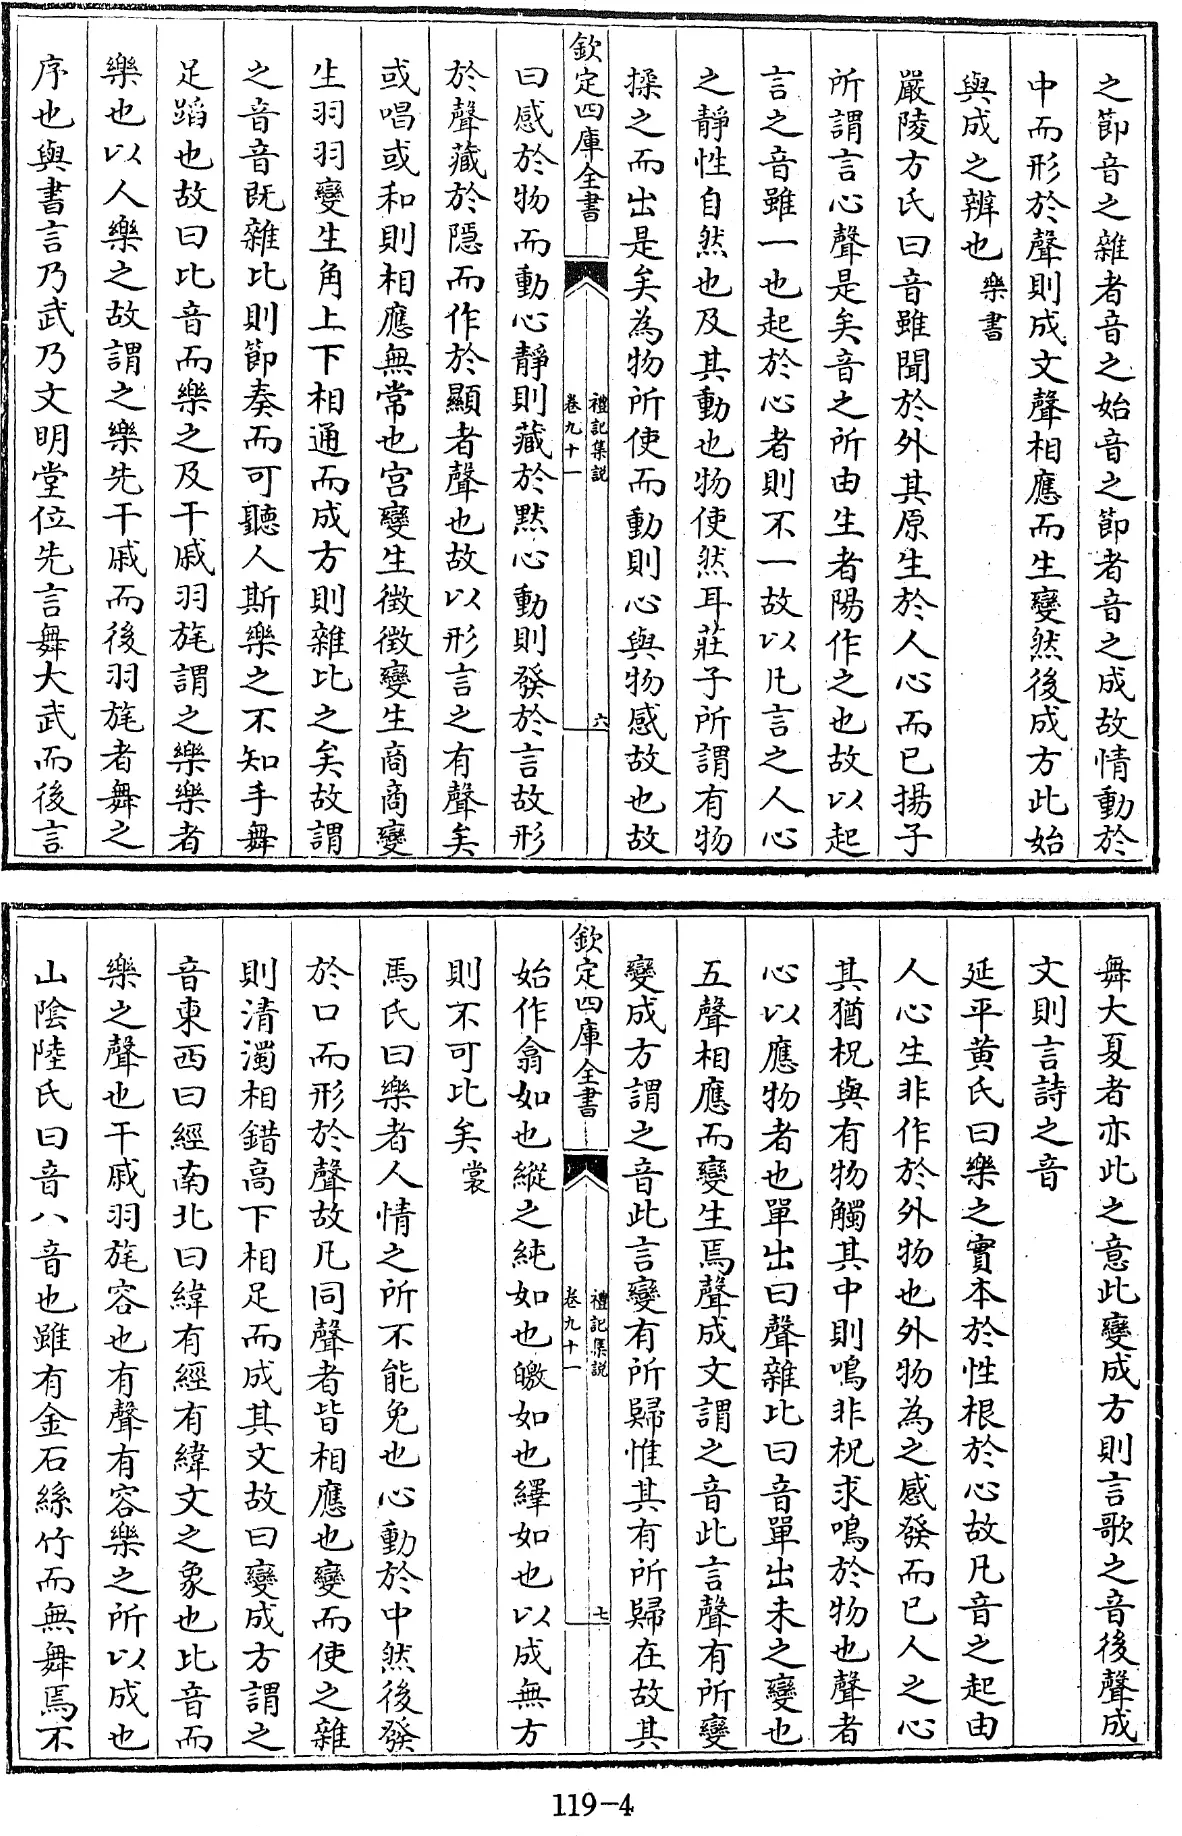 之節音之雜者音之始音之節者音之成故情動於
中而形於聲則成文聲相應而生變然後成方此始
與成之辨也樂書
嚴陵方氏曰音雖聞於外其原生於人心而已揚子
所謂言心聲是矣音之所由生者陽作之也故以起
言之音雖一也起於心者則不一故以凡言之人心
之靜性自然也及其動也物使然耳莊子所謂有物
採之而出是矣為物所使而動則心與物感故也故
欽定四庫全書
禮記集說
卷九十一
六
曰感於物而動心靜則藏於默心動則發於言故形
於聲藏於隱而作於顯者聲也故以形言之有聲矣
或唱或和則相應無常也宮變生徵徵變生商商變
生羽羽變生角上下相通而成方則雜比之矣故謂
之音音既雜比則節奏而可聽人斯樂之不知手舞
足蹈也故曰比音而樂之及干戚羽旄謂之樂樂者
樂也以人樂之故謂之樂先干戚而後羽旄者舞之
序也與書言乃武乃文明堂位先言舞大武而後言
舞大夏者亦此之意此變成方則言歌之音後聲成
文則言詩之音
延平黄氏曰樂之實本於性根於心故凡音之起由
人心生非作於外物也外物為之感發而已人之心
其猶柷與有物觸其中則鳴非柷求鳴於物也聲者
心以應物者也單出曰聲雜比曰音單出未之變也
五聲相應而變生焉聲成文謂之音此言聲有所變
變成方謂之音此言變有所歸惟其有所歸在故其
欽定四庫全書
禮記集說
卷九十一
七
始作翕如也縱之純如也皦如也繹如也以成無方
則不可比矣裳
馬氏曰樂者人情之所不能免也心動於中然後發
於口而形於聲故凡同聲者皆相應也變而使之雜
則清濁相錯高下相足而成其文故曰變成方謂之
音東西曰經南北曰緯有經有緯文之象也比音而
樂之聲也干戚羽旄容也有聲有容樂之所以成也
山陰陸氏曰音八音也雖有金石絲竹而無舞焉不
119-4